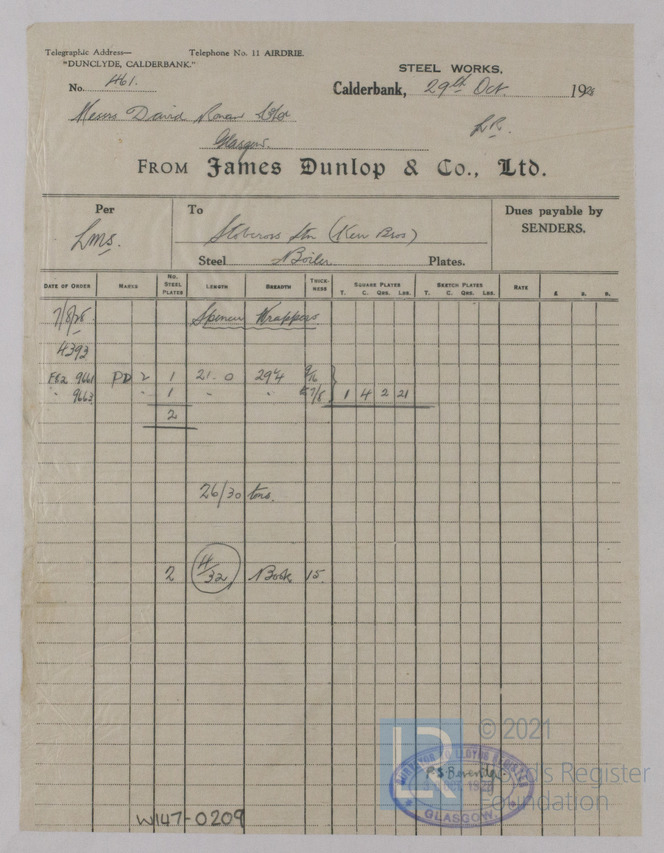 Telegraphic Address— Telephone No. 11 AIRDRIE.
"DUNCLYDE, CALDERBANK."
STEEL WORKS,
No. 461. Calderbank, 29th Oct. 1928
Messrs David Rowan & Co Ltd
LR.
Glasgow.
FROM James Dunlop & Co., Ltd.
Per To Dues payable by
SENDERS.
Lms. Stobcross Stn (Kerr Bros)
Steel Boiler Plates.
DATE OF ORDER MARKS NO. STEEL PLATES LENGTH BREADTH THICK-NESS SQUARE PLATES T. C. QRS. LBS. SKETCH PLATES T. C. QRS. LBS. RATE £ S. D.
7/8/28 Spencer Wrappers
4393
F82 9661 PD 2 1 21. 0 29¼ 9/16
" 9663 " 1 " " 1 4 2 21
2
26/30 tons.
2 4/32 15.
© 2021
LR Lloyd's Register
Foundation
SURVEYOR TO LLOYDS REGISTER
GLASGOW.
W147-0209